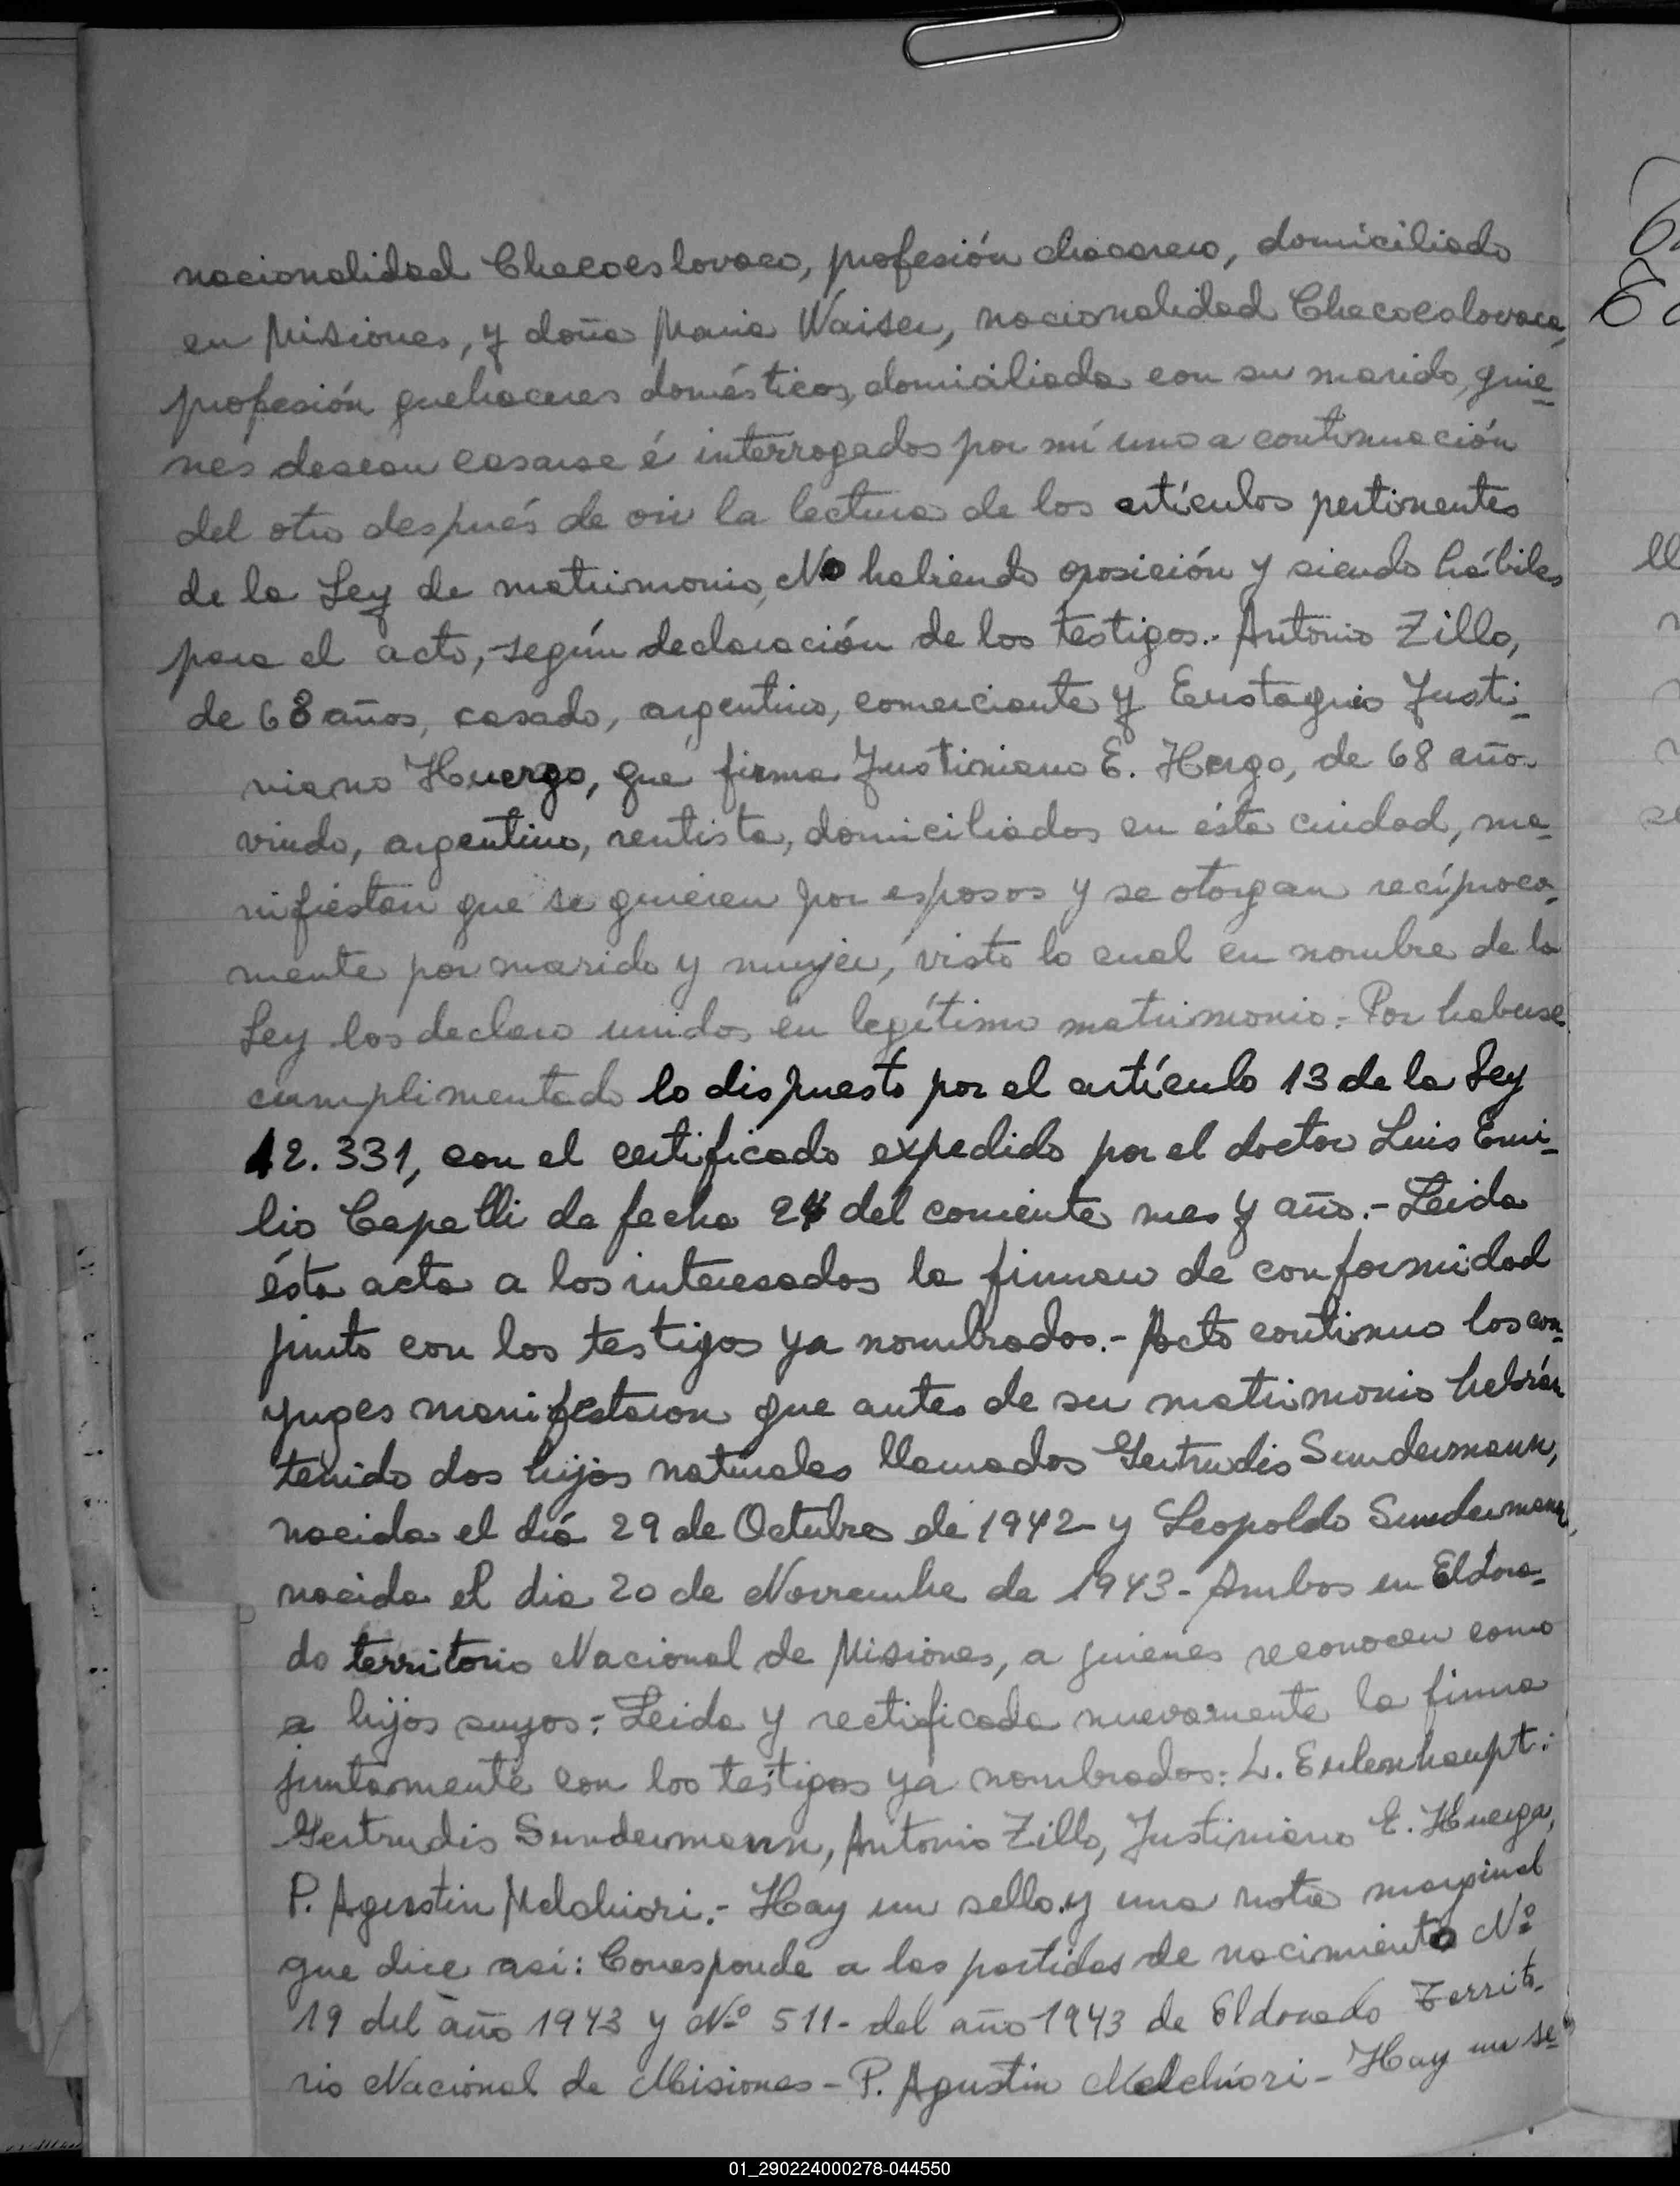 nacionalidad Checoeslovaco, profesión chacarero, domiciliado
en Misiones, y doña Maria Waiser, nacionalidad Checoeslovaca,
profesión quehaceres domésticos, domiciliada con su marido, quie-
nes desean casarse é interrogados por mí uno a continuación
del otro después de oir la lectura de los artículos pertinentes
de la Ley de matrimonio, No habiendo oposición y siendo hábiles
para el acto, según declaración de los testigos.- Antonio Zillo,
de 68 años, casado, argentino, comerciante y Eustaquio Justi-
niano Huergo, que firma Justiniano E. Hergo, de 68 años
viudo, argentino, rentista, domiciliados en ésta ciudad, ma-
nifiestan que se quieren por esposos y se otorgan recíproca-
mente por marido y mujer, visto lo cual en nombre de la
Ley los declaro unidos en legítimo matrimonio.- Por haberse
cumplimentado lo dispuesto por el artículo 13 de la Ley
12.331, con el certificado expedido por el doctor Luis Emi-
lio Capelli de fecha del corriente mes y año.- Leida
ésta acta a los interesados la firman de conformidad
junto con los testigos ya nombrados.- Acto continuo los con-
yuges manifestaron que antes de su matrimonio habrán
tenido dos hijos naturales llamados Gertrudis Sundermann,
nacida el día 29 de Octubre de 1942- y Leopoldo Sundermann,
nacida el dia 20 de Noviembre de 1943- Ambos en Eldora-
do territorio Nacional de Misiones, a quienes reconocen como
a hijos suyos:- Leida y rectificada nuevamente la firma
juntamente con los testigos ya nombrados: L. Eulenhaupt:
Gertrudis Sundermann, Antonio Zillo, Justiniano E. Huergo,
P. Agustin Melchiori.- Hay un sello y una nota marginal
que dice asi: Corresponde a las partidas de nacimiento Nº
19 del año 1943 y Nº 511- del año 1943 de Eldorado Territo-
rio Nacional de Misiones- P. Agustin Melchiori- Hay un se-
01_290224000278-044550